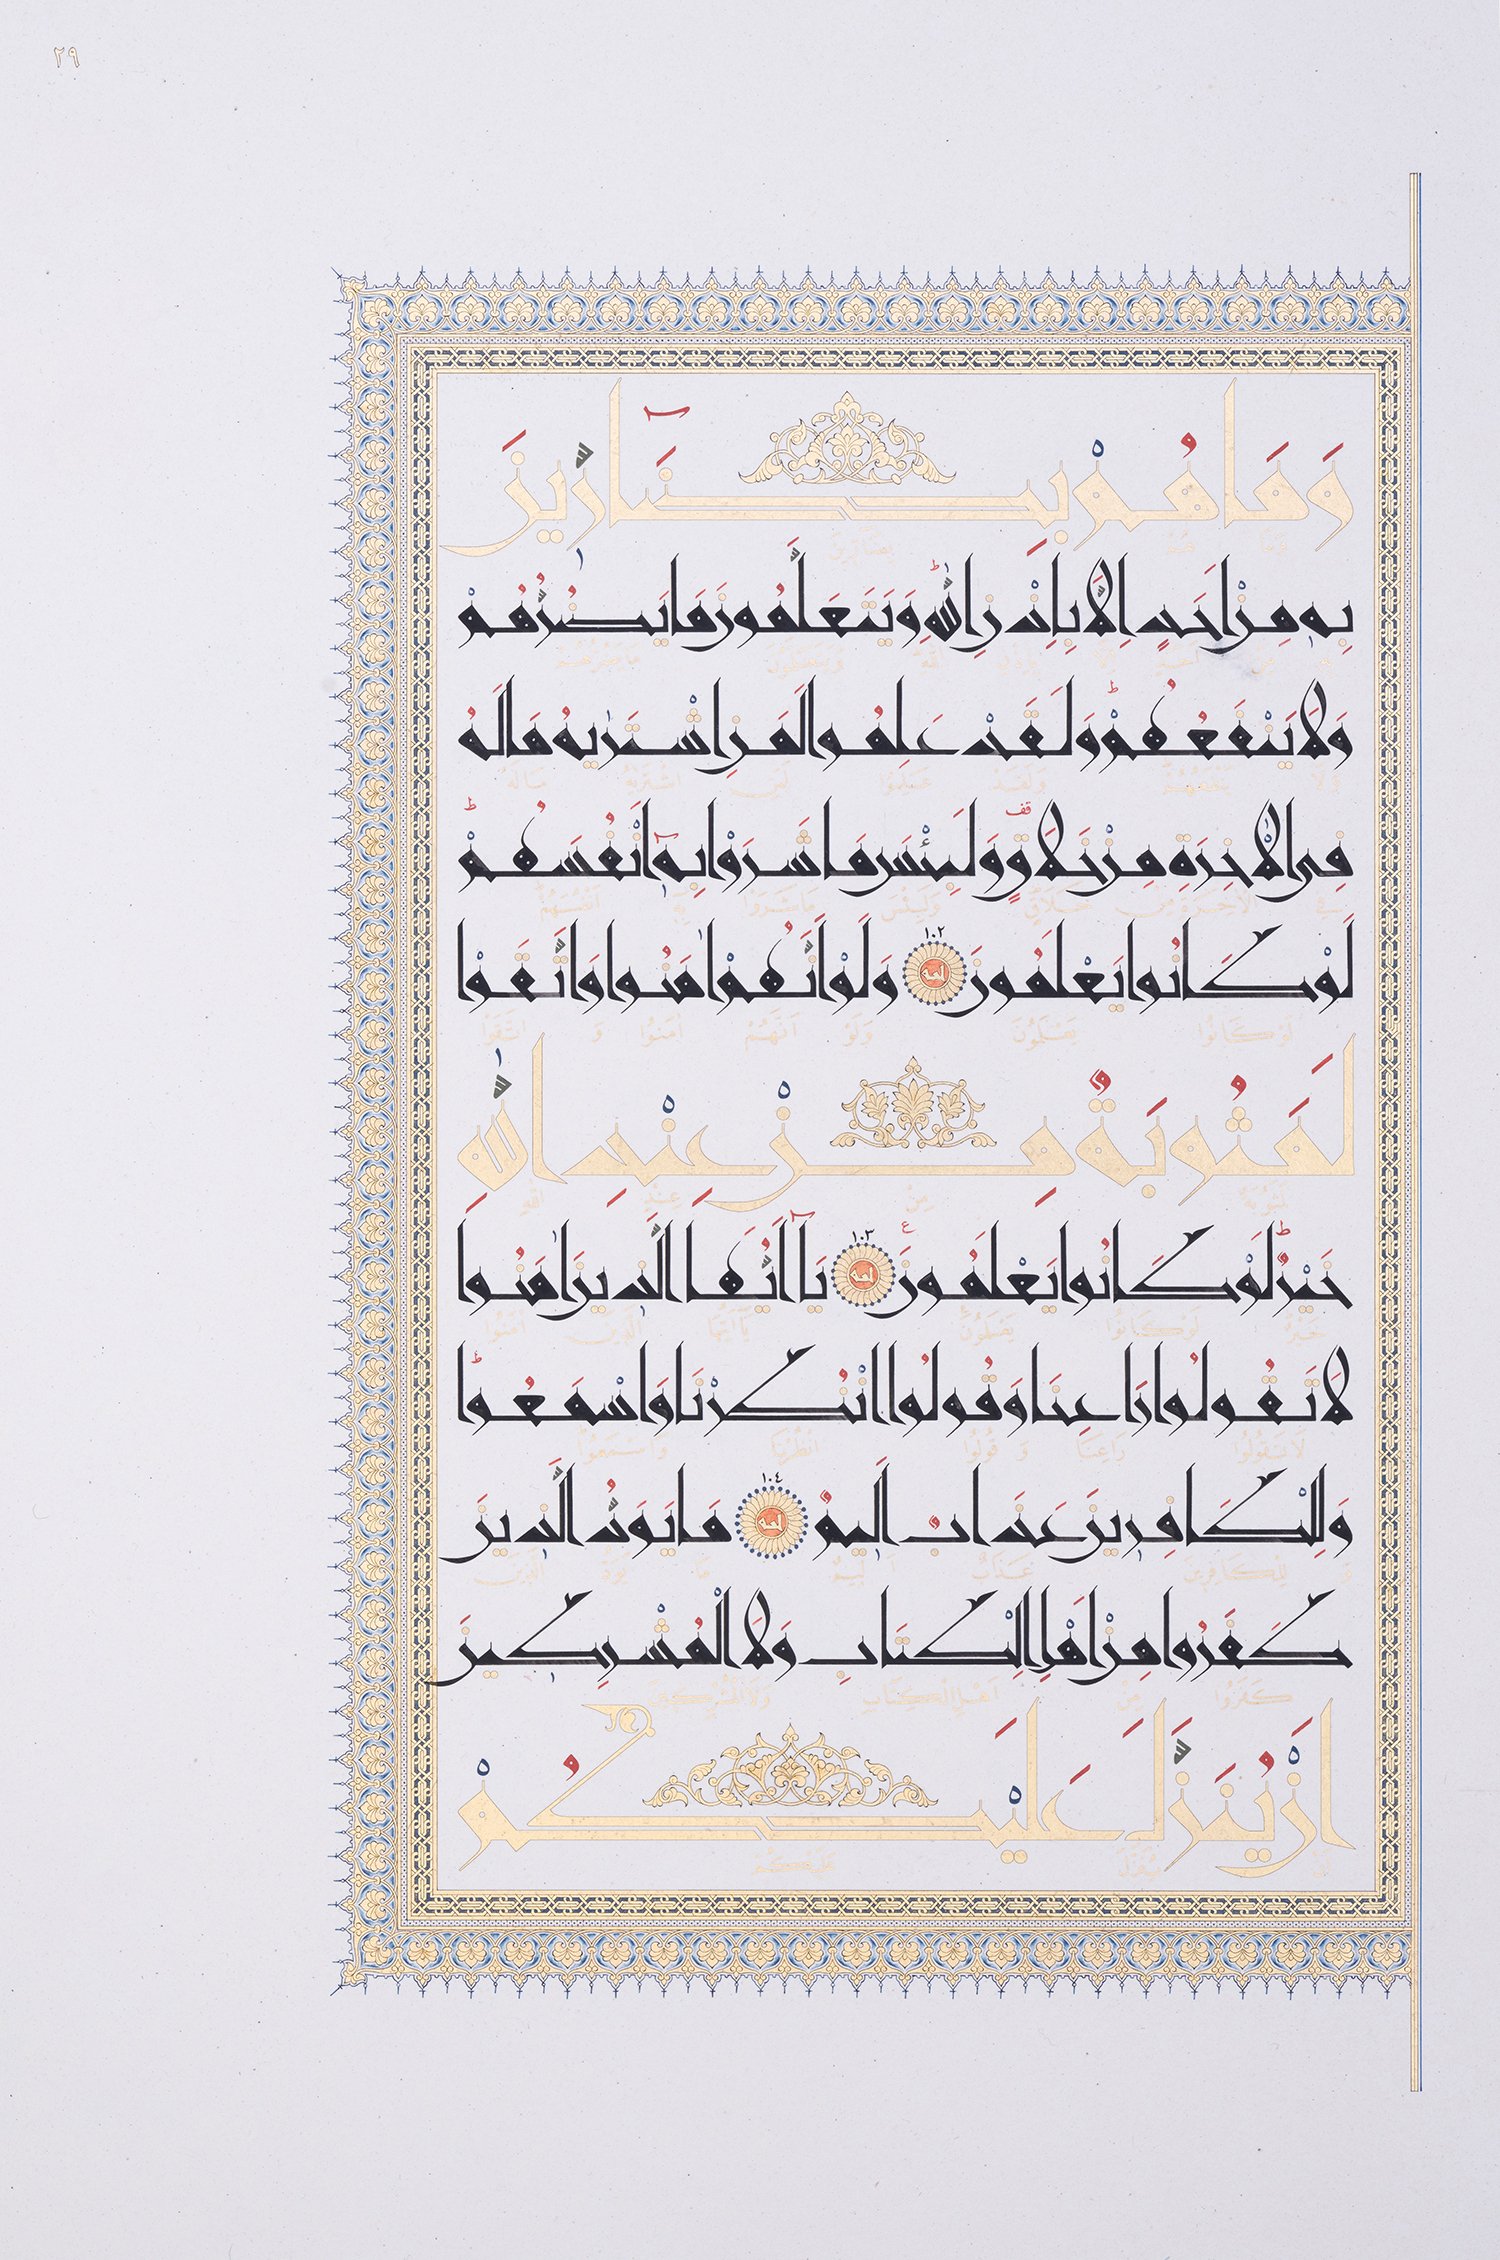 ٢٩
وَمَا هُمْ بِضَٓارّ۪ينَ
بِه۪ مِنْ اَحَدٍ اِلَّا بِاِذْنِ اللّٰهِؕ وَيَتَعَلَّمُونَ مَا يَضُرُّهُمْ
وَلَا يَنْفَعُهُمْؕ وَلَقَدْ عَلِمُوا لَمَنِ اشْتَرٰيهُ مَا لَهُ
فِي الْاٰخِرَةِ مِنْ خَلَاقٍࣞ وَلَبِئْسَ مَا شَرَوْا بِه۪ٓ اَنْفُسَهُمْؕ
لَوْ كَانُوا يَعْلَمُونَ ١٠٢ وَلَوْ اَنَّهُمْ اٰمَنُوا وَاتَّقَوْا
لَمَثُوبَةٌ مِنْ عِنْدِ اللّٰهِ
خَيْرٌؕ لَوْ كَانُوا يَعْلَمُونَ ع ١٠٣ يَٓا اَيُّهَا الَّذ۪ينَ اٰمَنُوا
لَا تَقُولُوا رَاعِنَا وَقُولُوا انْظُرْنَا وَاسْمَعُواؕ
وَلِلْكَافِر۪ينَ عَذَابٌ اَل۪يمٌ ١٠٤ مَا يَوَدُّ الَّذ۪ينَ
كَفَرُوا مِنْ اَهْلِ الْكِتَابِ وَلَا الْمُشْرِك۪ينَ
اَنْ يُنَزَّلَ عَلَيْكُمْ